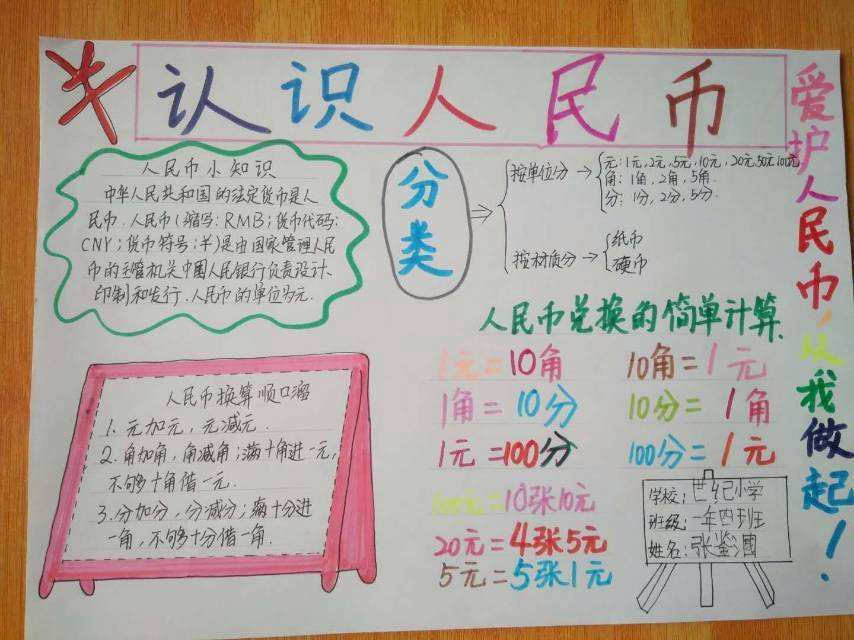 认识人民币
爱护人民币,从我做起!
人民币小知识
中华人民共和国的法定货币是人
民币.人民币(缩写:RMB;货币代码:
CNY;货币符号:¥)是由国家管理人民
币的主管机关中国人民银行负责设计、
印制和发行.人民币的单位为元.
分类
按单位分→
元:1元,2元,5元,10元,20元50元100元
角:1角,2角,5角.
分:1分,2分,5分.
按材质分→
纸币
硬币
人民币兑换的简单计算.
1元=10角 10角=1元
1角=10分 10分=1角
1元=100分 100分=1元
100元=10张10元
20元=4张5元
5元=5张1元
人民币换算顺口溜
1.元加元,元减元.
2.角加角,角减角;满十角进一元,
不够十角借一元.
3.分加分,分减分;满十分进
一角,不够十分借一角.
学校:世纪小学
班级:一年四班
姓名:张